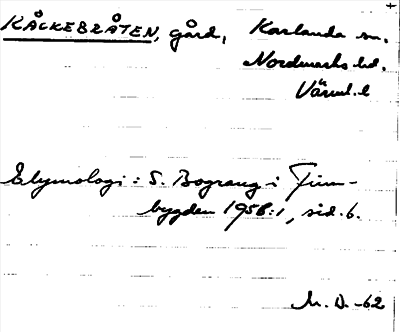 KÅCKEBRÅTEN, gård, Karlanda sn.
Nordmarks hd.
Värml. l
Etymologi: S. Bograng i Finn-
bygden 1958:1, sid. 6.
M. D. -62